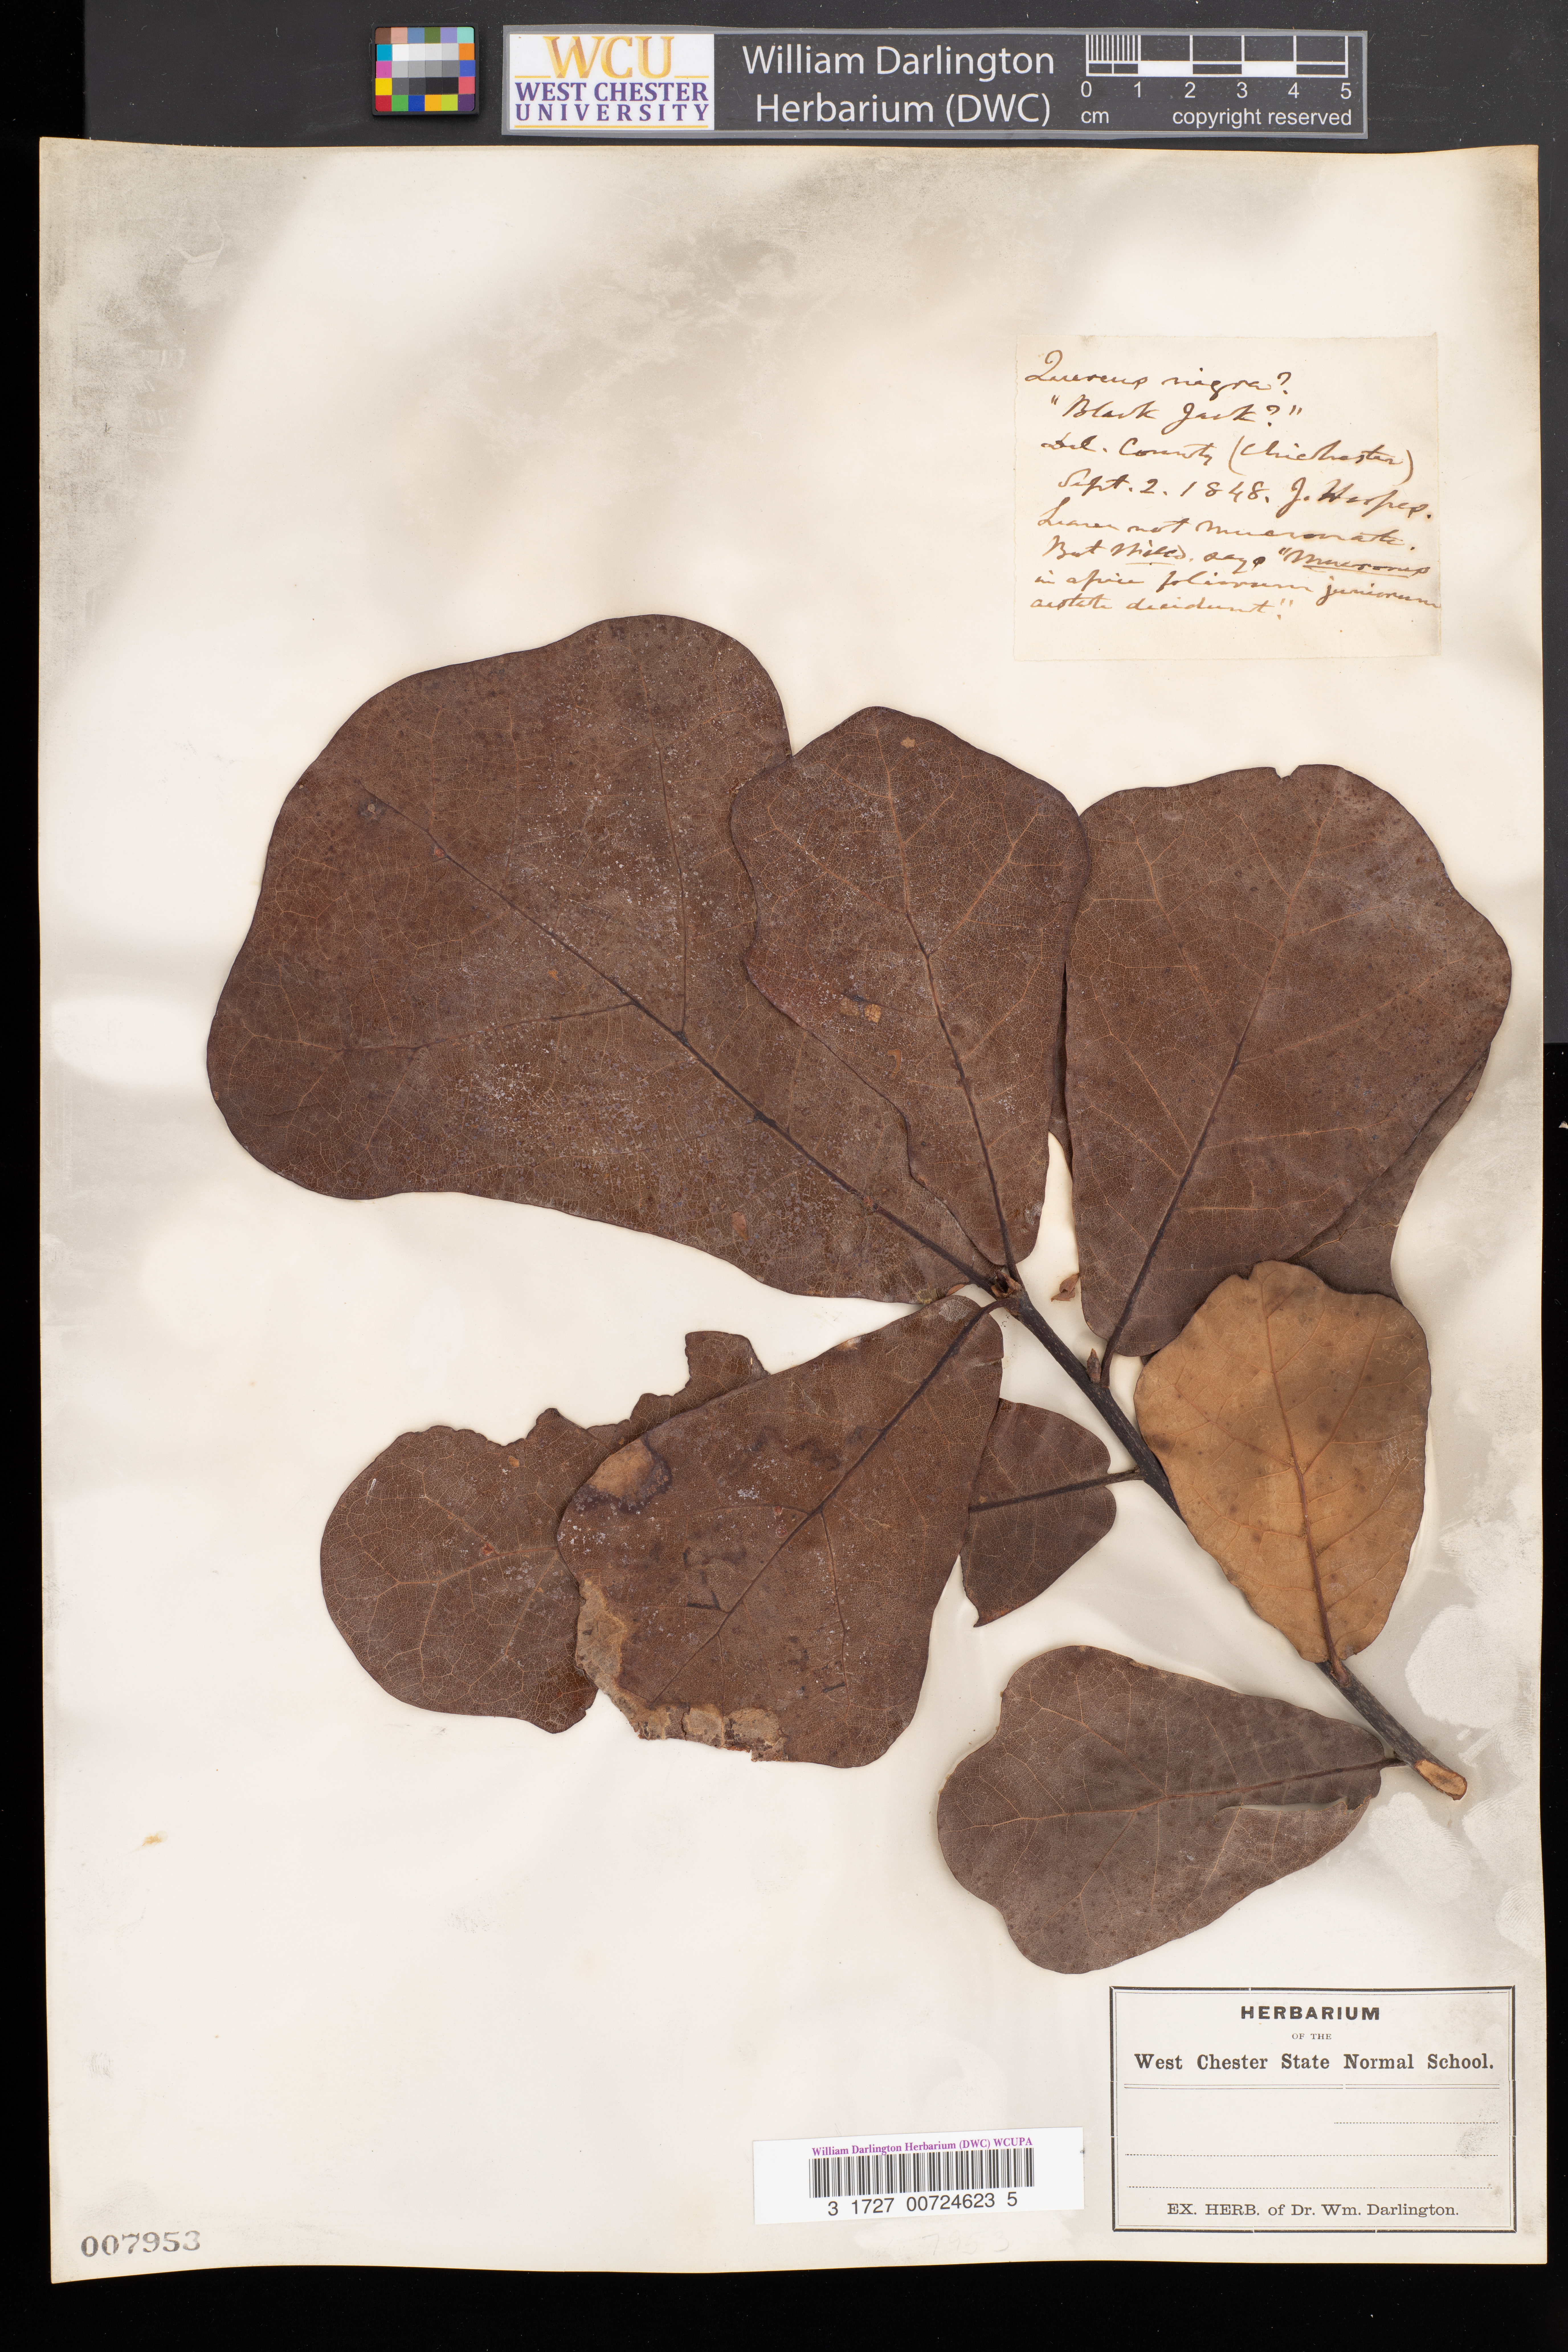 WCU
WEST CHESTER
UNIVERSITY
William Darlington
Herbarium (DWC)
0 1 2 3 4 5
cm copyright reserved
Quercus nigra?
"Black Jack?"
Del. County (Chichester)
Sept. 2. 1848. J.
Leaves not mucronate.
But Willd. says "Mucrones
in apice foliorum juniorum
aestate decidunt."
HERBARIUM
OF THE
West Chester State Normal School.
EX. HERB. of Dr. Wm. Darlington.
William Darlington Herbarium (DWC) WCUPA
3 1727 00724623 5
007953